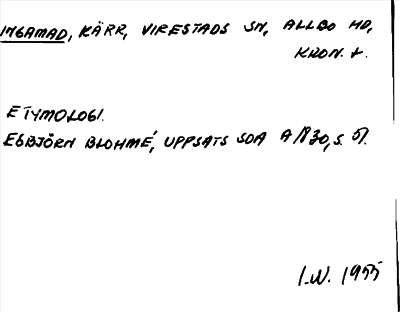 INGAMAD, KÄRR, VIRESTADS SN, ALLBO HD,
KRON. L.
ETYMOLOGI.
ESBJÖRN BLOHMÉ, UPPSATS SOA A/830, S. 51.
I.W. 1955